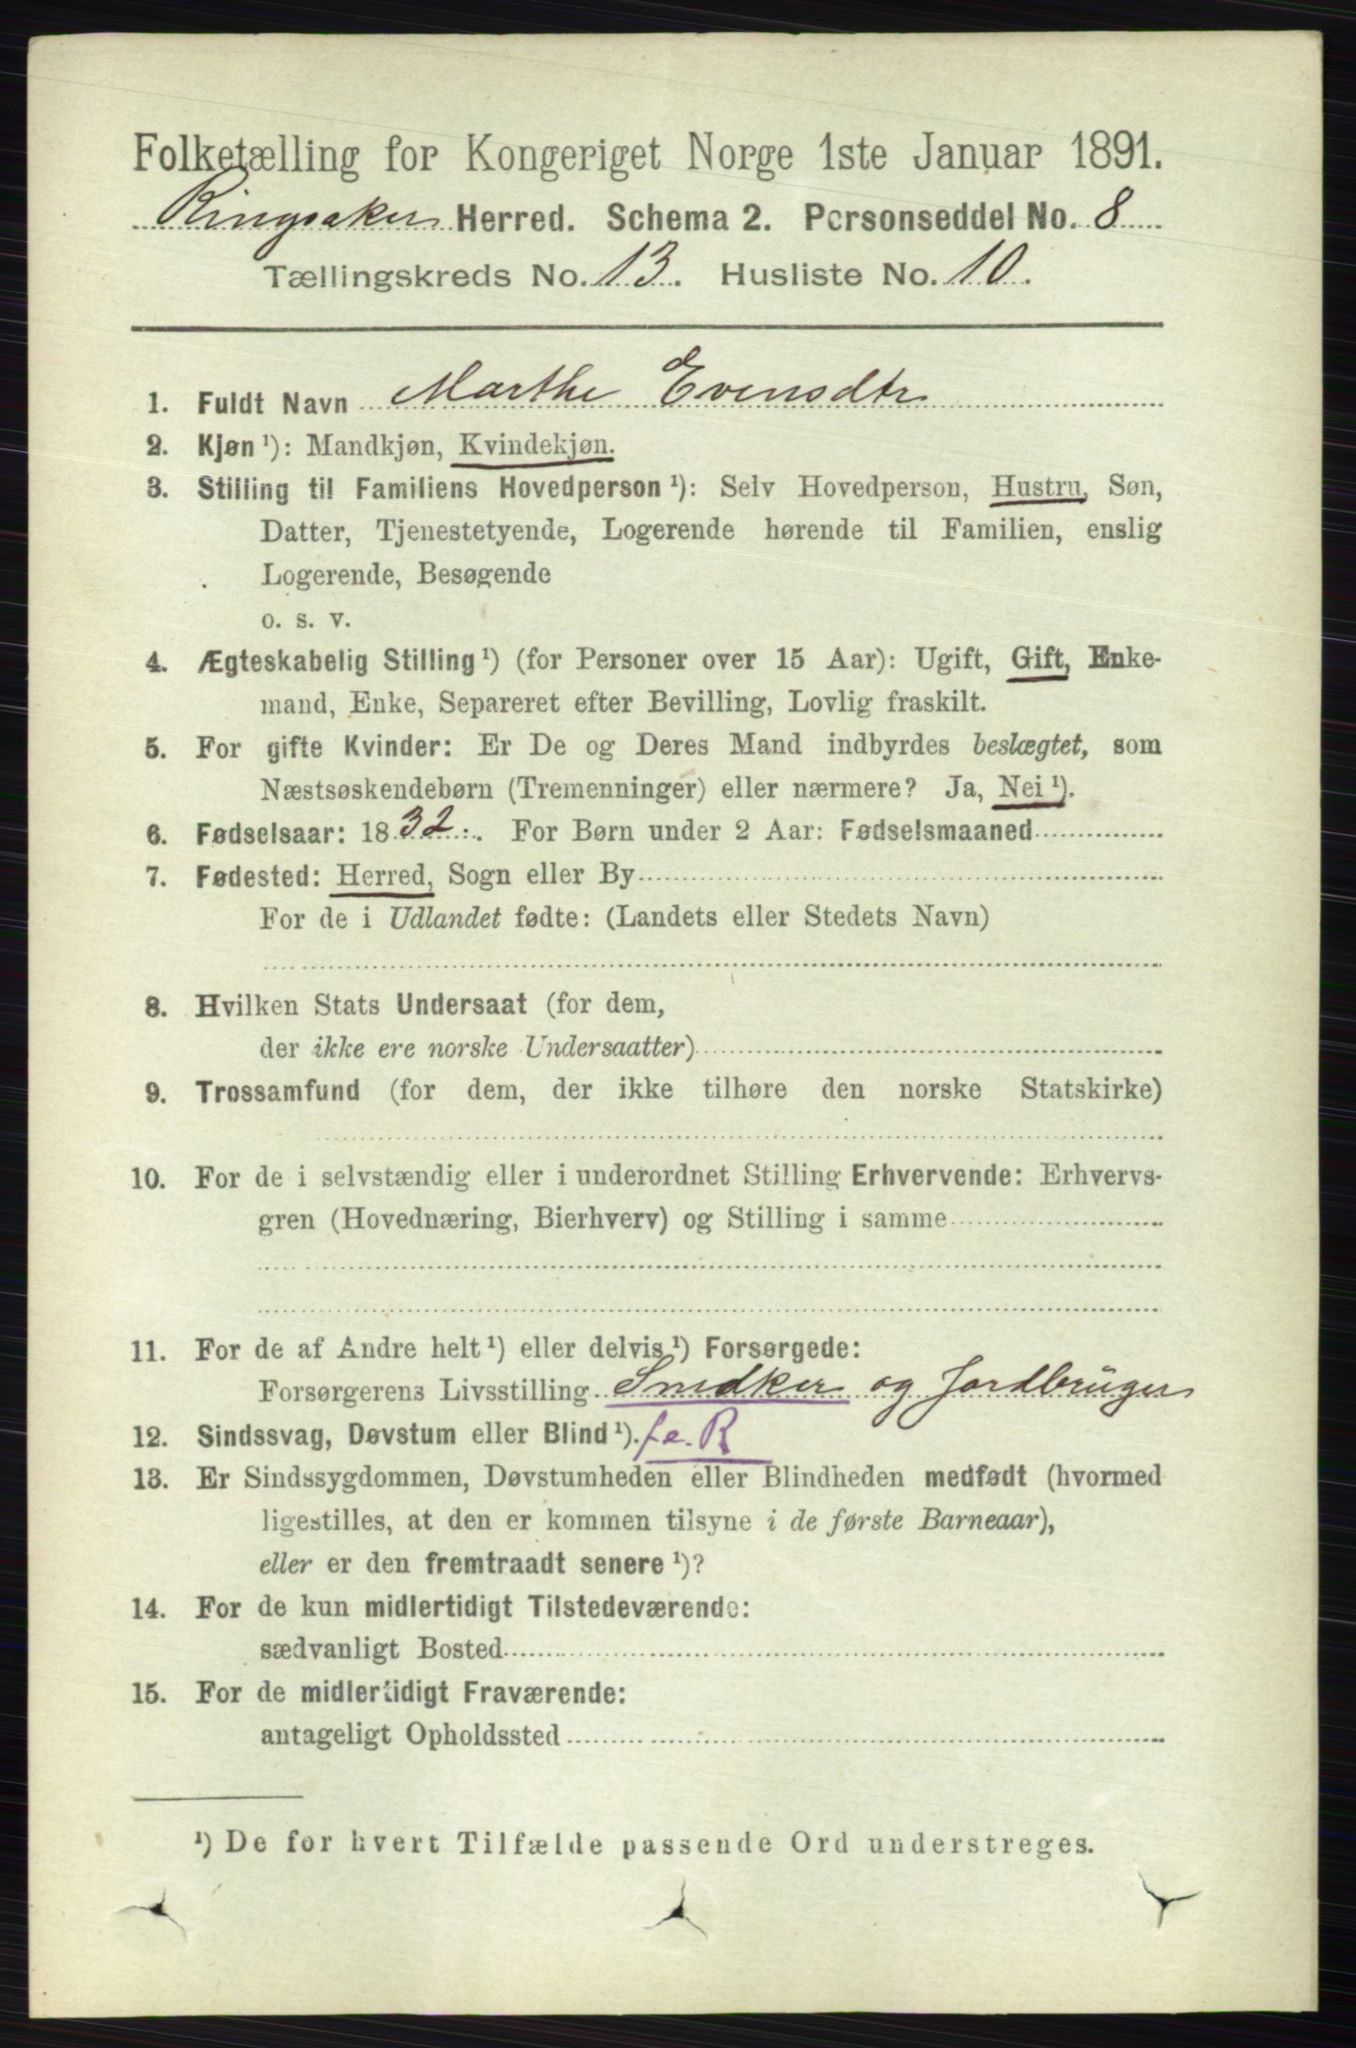 Folketælling for Kongeriget Norge 1ste Januar 1891.
Ringsaker Herred. Schema 2. Personseddel No. 8
Tællingskreds No. 13. Husliste No. 10.
1. Fuldt Navn Marthe Evensdtr
2. Kjøn ¹): Mandkjøn, Kvindekjøn.
3. Stilling til Familiens Hovedperson ¹): Selv Hovedperson, Hustru, Søn,
Datter, Tjenestetyende, Logerende hørende til Familien, enslig
Logerende, Besøgende
o. s. v.
4. Ægteskabelig Stilling ¹) (for Personer over 15 Aar): Ugift, Gift, Enke-
mand, Enke, Separeret efter Bevilling, Lovlig fraskilt.
5. For gifte Kvinder: Er De og Deres Mand indbyrdes beslægtet, som
Næstsøskendebørn (Tremenninger) eller nærmere? Ja, Nei ¹).
6. Fødselsaar: 1832. For Børn under 2 Aar: Fødselsmaaned
7. Fødested: Herred, Sogn eller By
For de i Udlandet fødte: (Landets eller Stedets Navn)
8. Hvilken Stats Undersaat (for dem,
der ikke ere norske Undersaatter)
9. Trossamfund (for dem, der ikke tilhøre den norske Statskirke)
10. For de i selvstændig eller i underordnet Stilling Erhvervende: Erhvervs-
gren (Hovednæring, Bierhverv) og Stilling i samme
11. For de af Andre helt ¹) eller delvis ¹) Forsørgede:
Forsørgerens Livsstilling Snedker og Jordbrüger
12. Sindssvag, Døvstum eller Blind ¹). f.e. R
13. Er Sindssygdommen, Døvstumheden eller Blindheden medfødt (hvormed
ligestilles, at den er kommen tilsyne i de første Barneaar),
eller er den fremtraadt senere ¹)?
14. For de kun midlertidigt Tilstedeværende:
sædvanligt Bosted
15. For de midlertidigt Fraværende:
antageligt Opholdssted
¹) De for hvert Tilfælde passende Ord understreges.